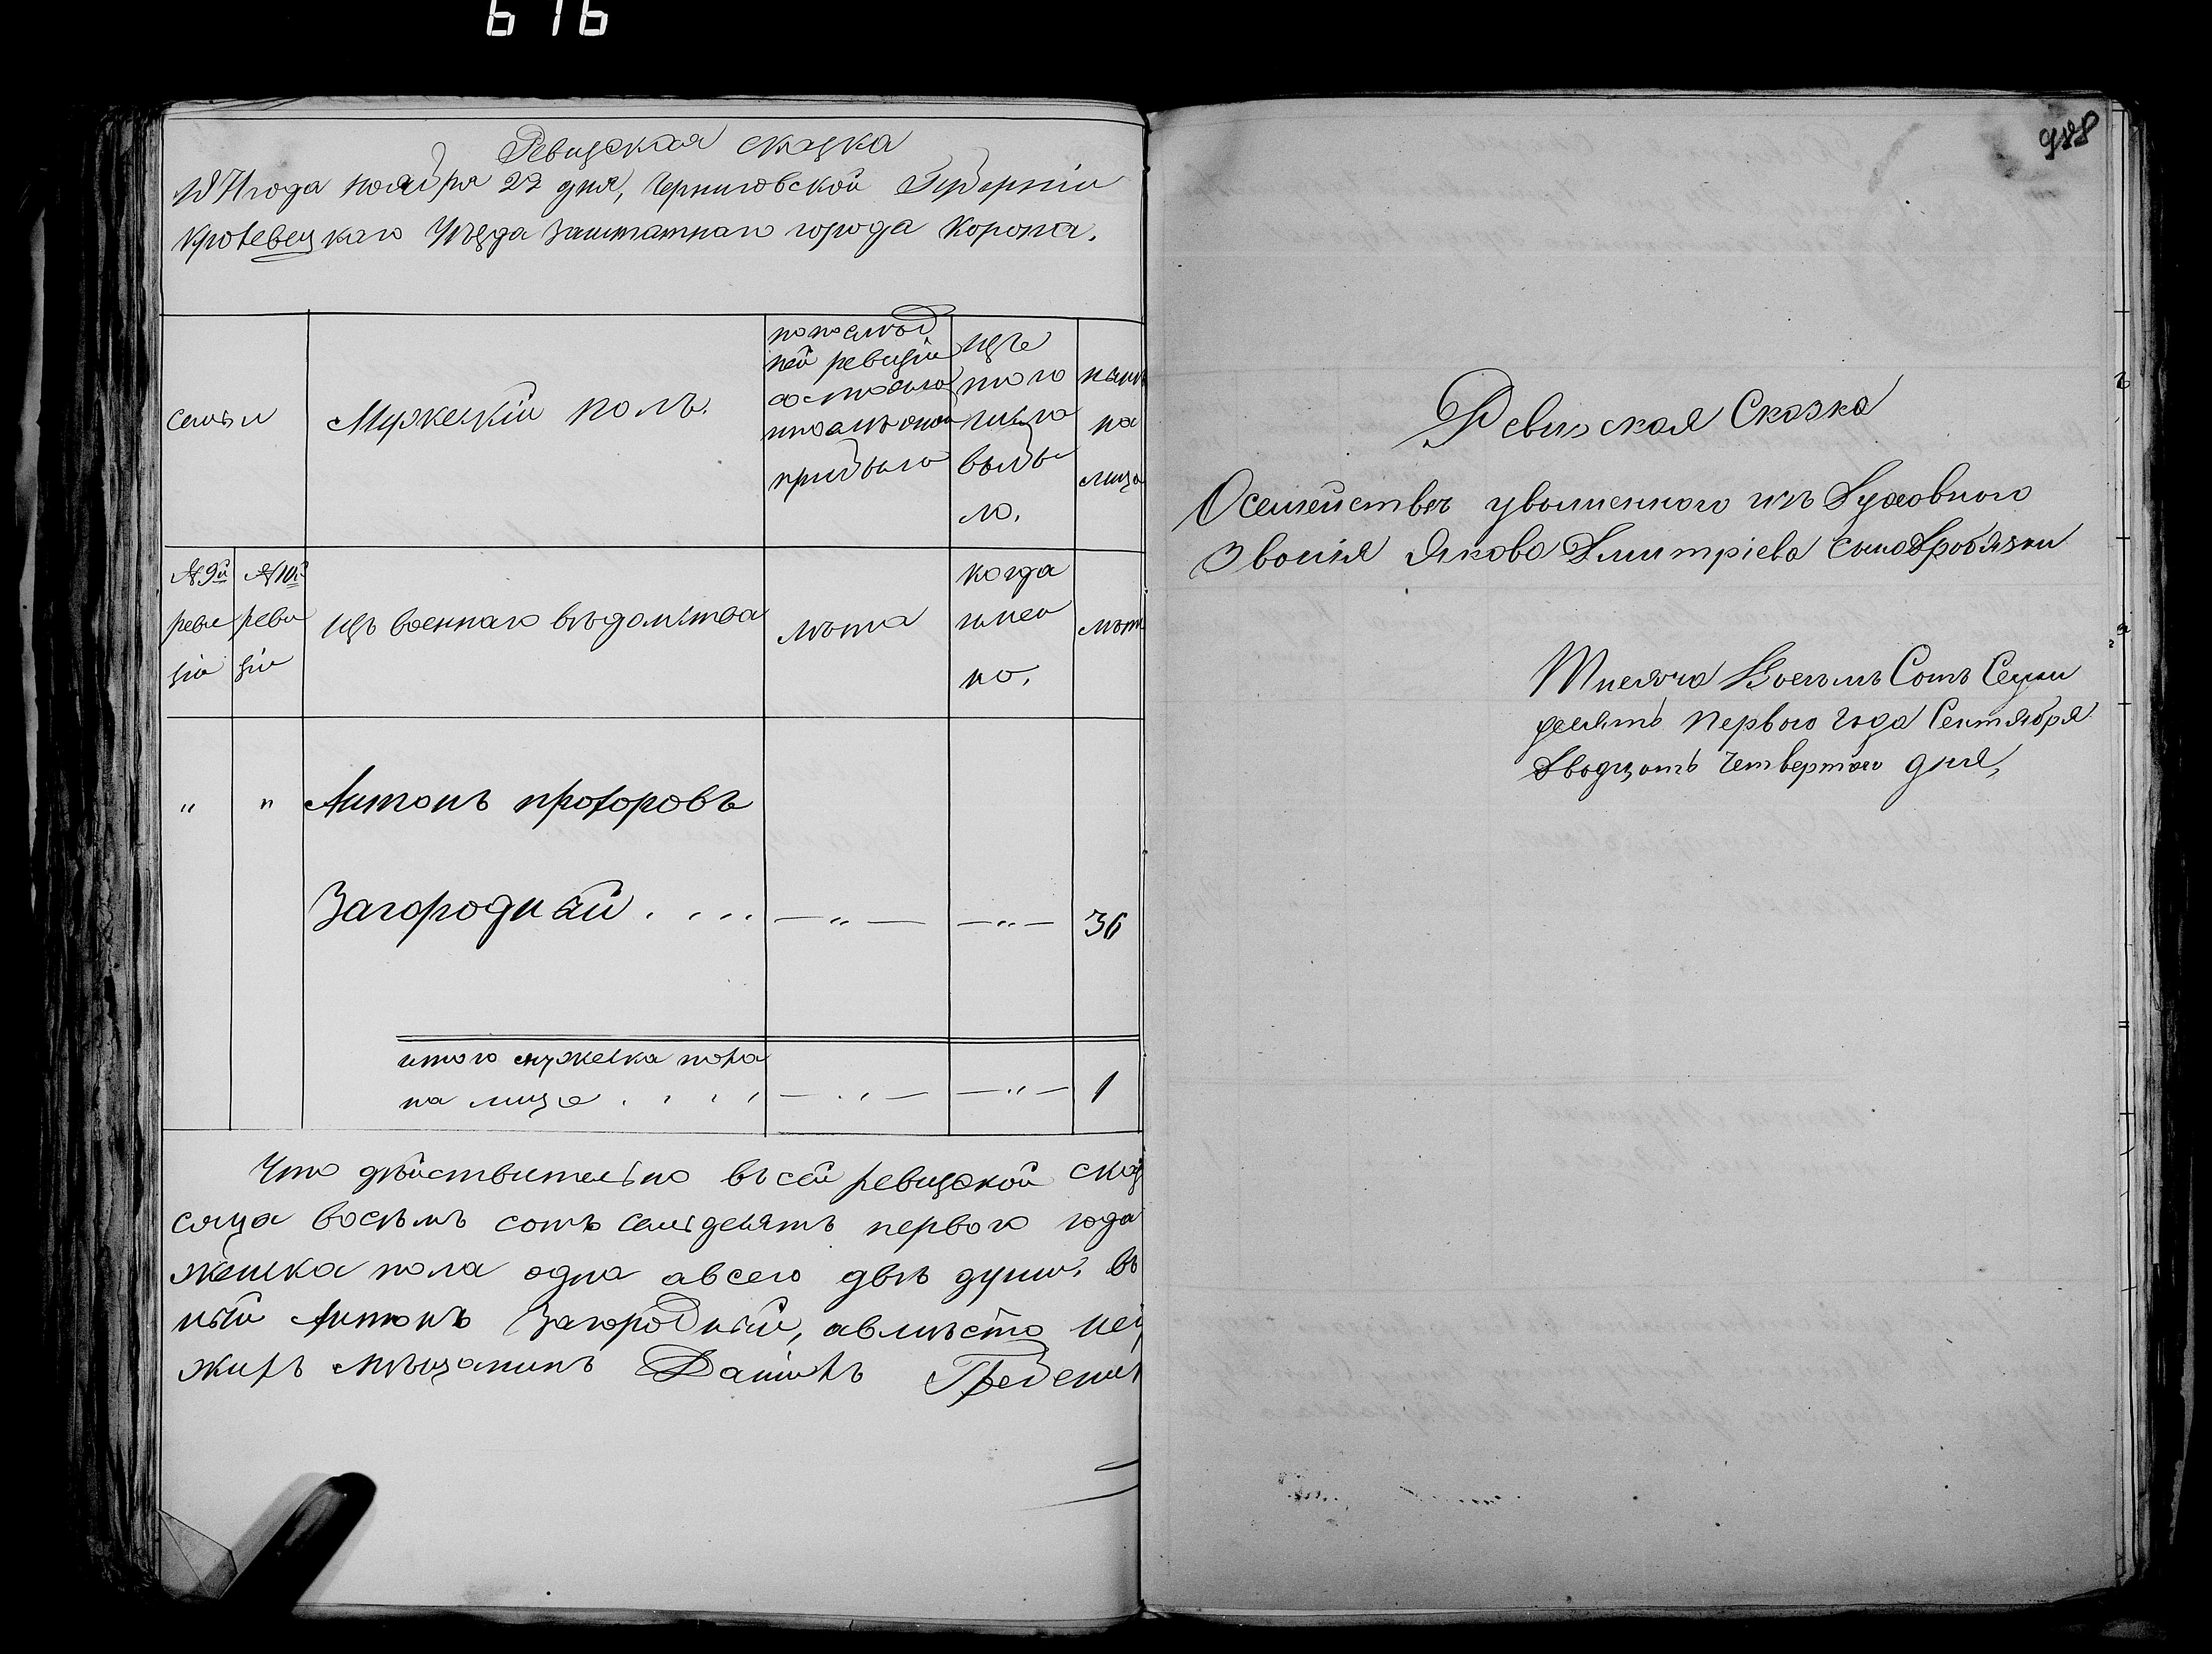 616
Ревизская сказка
1871 года ноября 22 дня, Черниговской Губерніи
Кролевецкаго Уѣзда Заштатнаго города Коропа.
семьи
Мужескій полъ.
по послѣд
ней ревизіи
состояло
и послѣ оной
прибыло
изъ
того
числа
выбы
ло.
нынѣ
на
лицо
№ 9й
реви
зіи
№ 10й
реви
зіи
изъ военнаго вѣдомства
лѣта
когда
имен
но.
лѣта
„ „ Антонъ прохоровъ
Загородній . . . . — „ — — „ — 36
итого мужеска пола
на лицо . . . . — „ — — „ — 1
Что дѣйствительно въ сей ревизской сказ
сяча восемъ сотъ семьдесятъ первого года
женска пола одна а всего двѣ души. въ
ный Антонъ Загородный, а вместо не
жилъ мѣщанинъ Данiилъ Гребени
988
Ревизская Сказка
О семействѣ уволенного изъ Духовного
Званія Якова Дмитріева сына Дробязки
Тисяча Восемъ Сотъ Семи
десятъ Первого Года Сентября
Двадцать Четвертого дня,